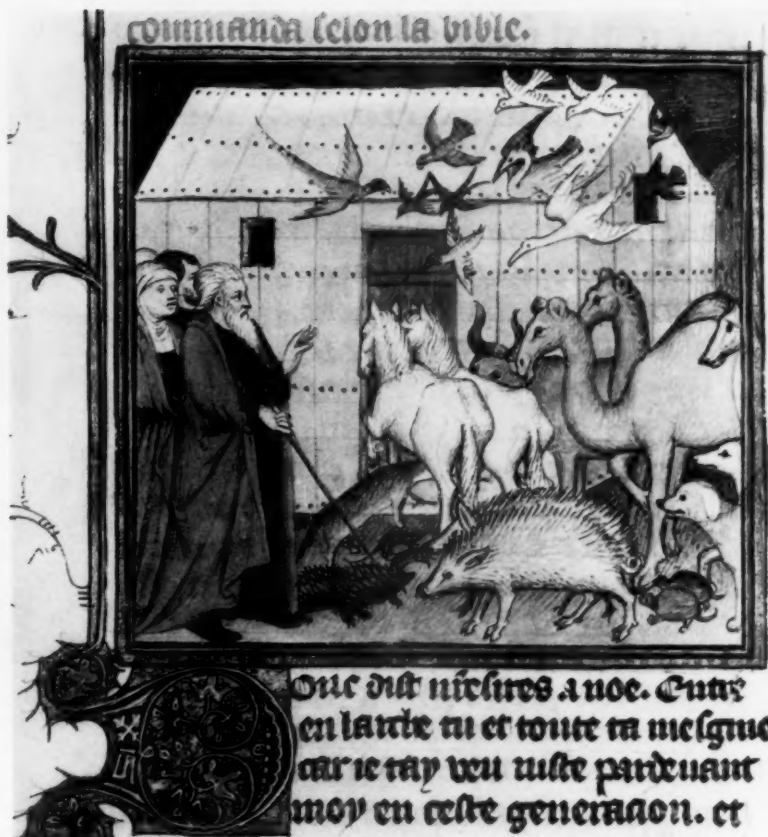 commanda selon la bible.
Donc dist nr̃e sires a noe. Entre
en larche tu et toute ta mesgnie
car ie tay veu iuste pardeuant
moy en ceste generacion. et